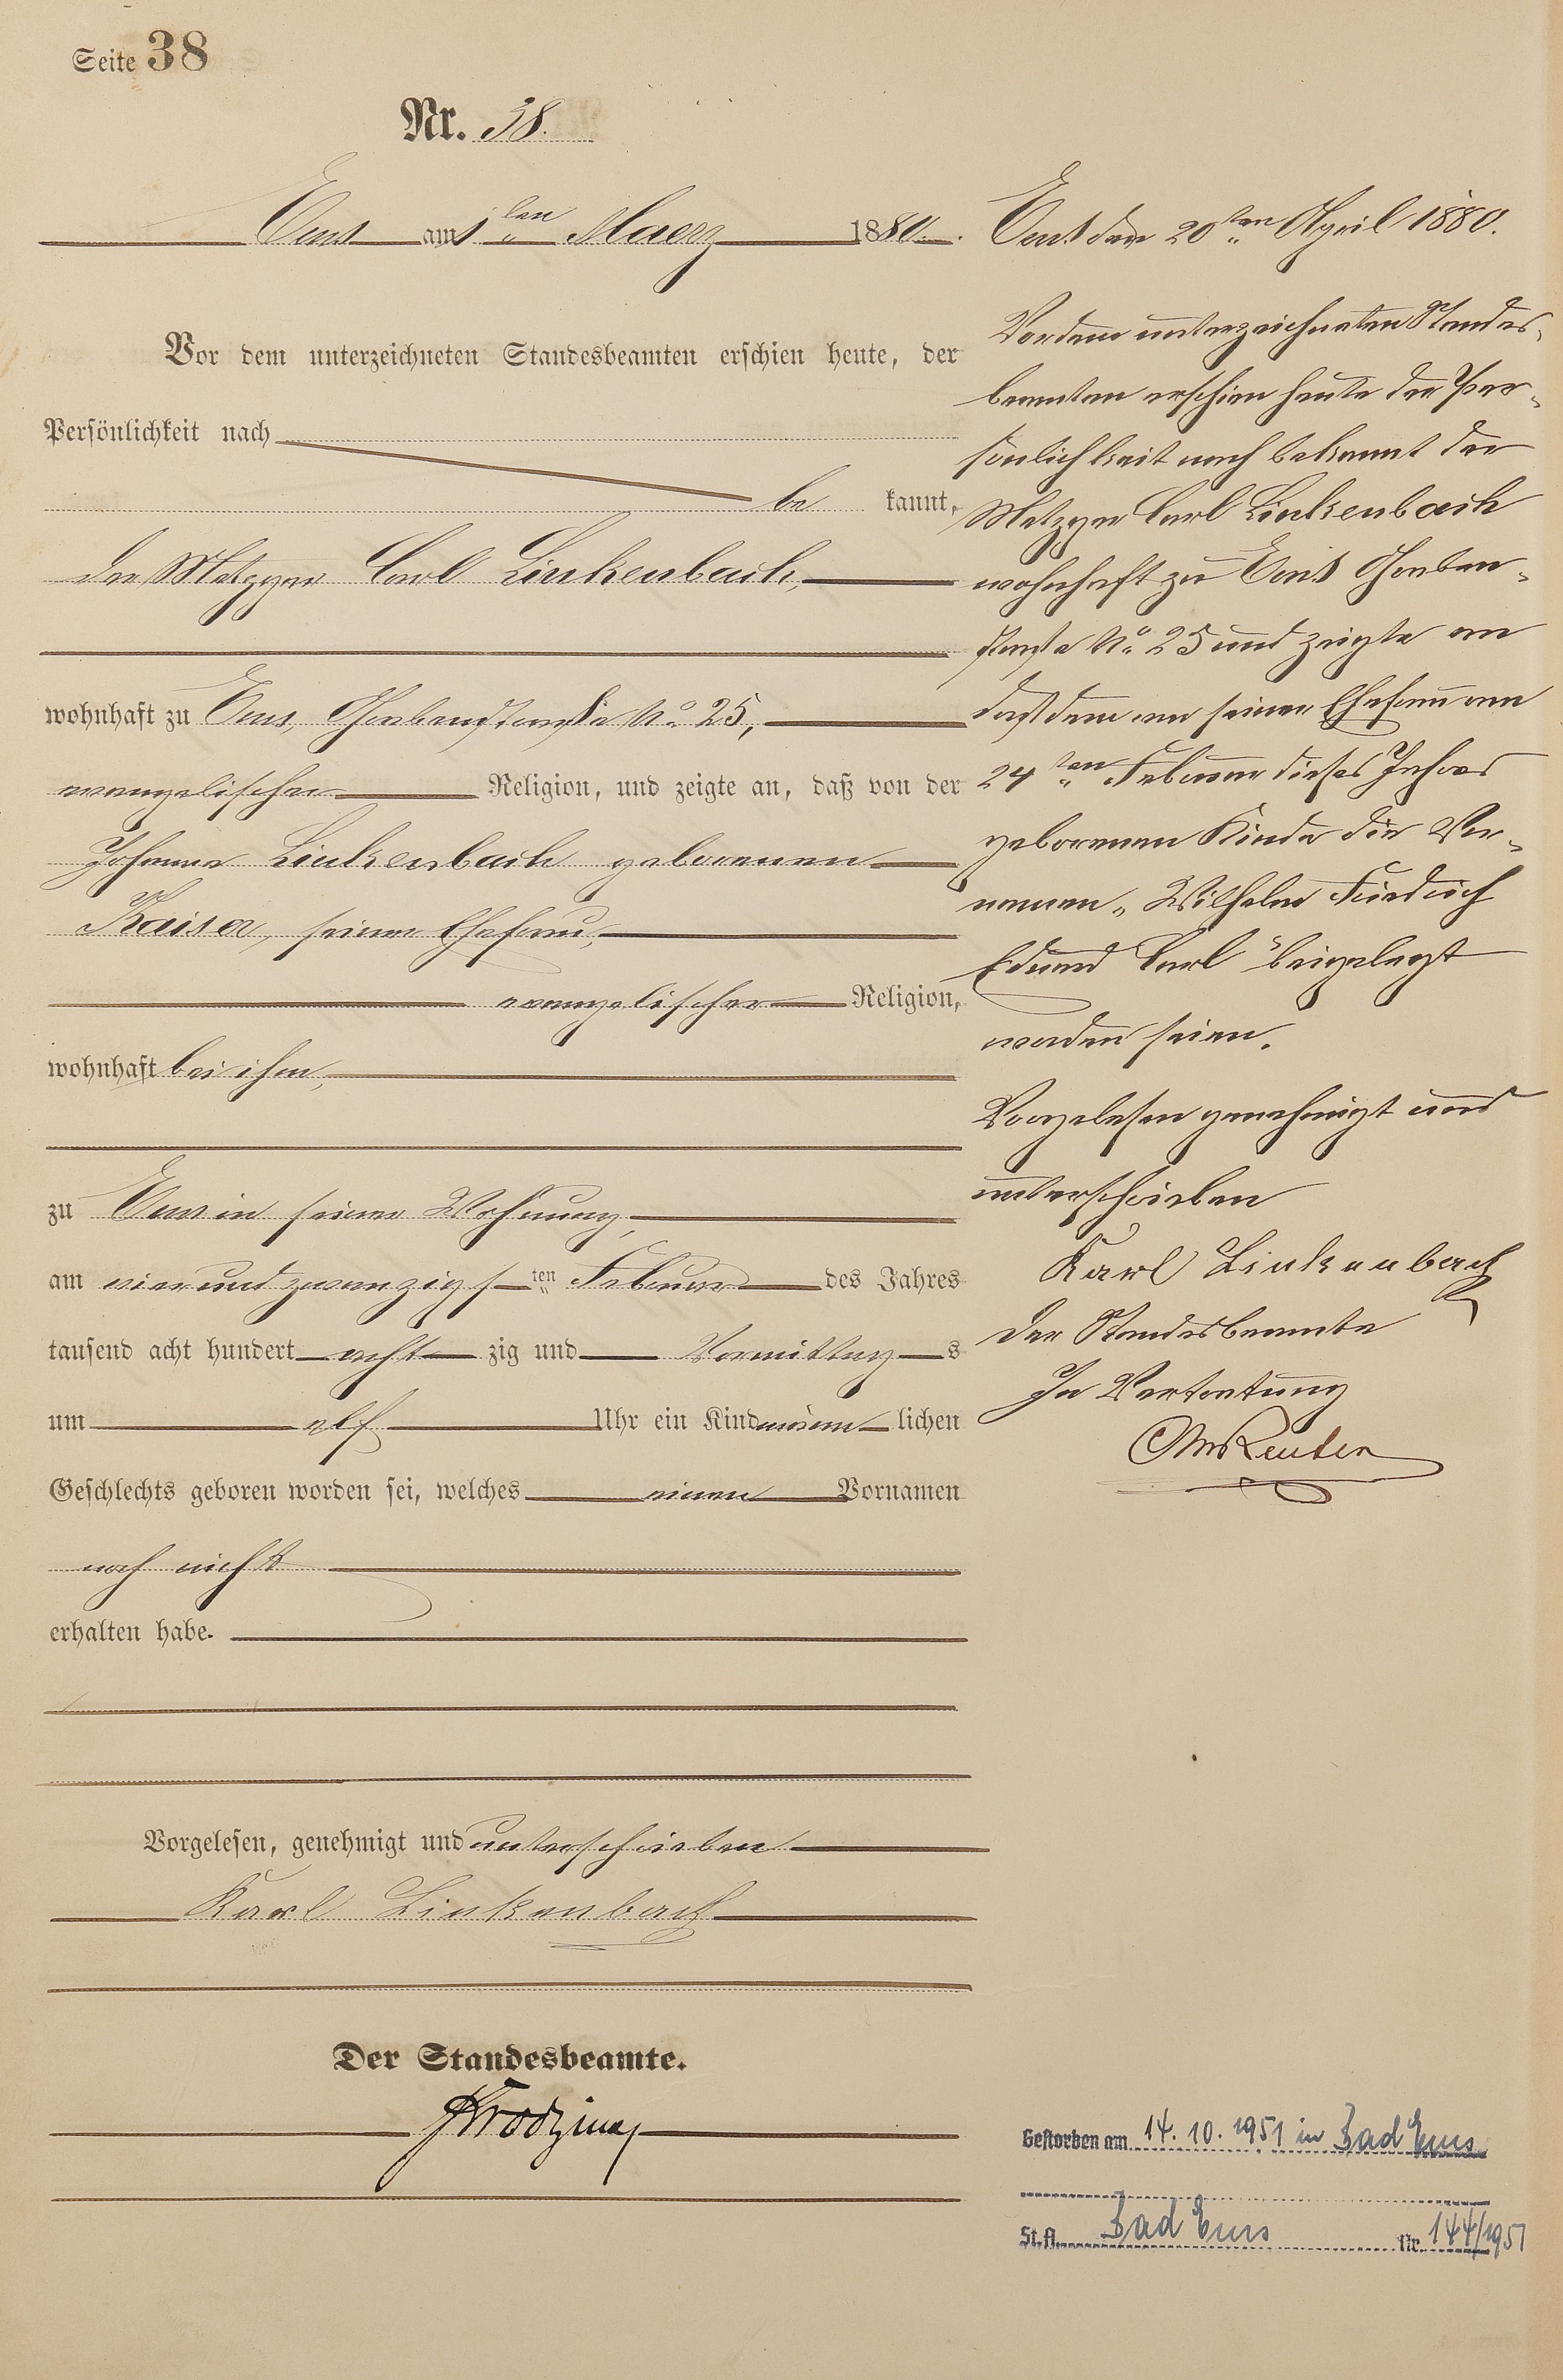 Seite 38
Nr. 38.
Ems am 1ten Maerz 1880.
Vor dem unterzeichneten Standesbeamten erschien heute, der
Persönlichkeit nach
be kannt,
der Metzger Carl Linkenbach,
wohnhaft zu Ems, Grabenstraße No 25,
evangelischer Religion, und zeigte an, daß von der
Johanna Linkenbach geborenen
Kaiser, seiner Ehefrau,
evangelischer Religion,
wohnhaft bei ihm,
zu Ems in seiner Wohnung,
am vierundzwanzigsten Februar des Jahres
tausend acht hundert acht zig und Vormittags
um elf Uhr ein Kind männlichen
Geschlechts geboren worden sei, welches einen Vornamen
noch nicht
erhalten habe.
Vorgelesen, genehmigt und unterschrieben
Karl Linkenbach
Der Standesbeamte.
Ems den 20ten April 1880.
Vor dem unterzeichneten Standes-
beamten erschien heute der Per-
sönlichkeit nach bekannt der
Metzger Carl Linkenbach
wohnhaft zu Ems Graben-
straße No 25 und zeigte an
daß dem von seiner Ehefrau am
24ten Februar dieses Jahres
geborenen Kinde die Vor-
namen „Wilhelm Friedrich
Eduard Carl" beigelegt
worden seien.
Vorgelesen genehmigt und
unterschrieben
Karl Linkenbach
Der Standesbeamte
In Vertretung
Reuter
Gestorben am 14.10.1951 in Bad Ems
St.A. Bad Ems Nr. 144/1951